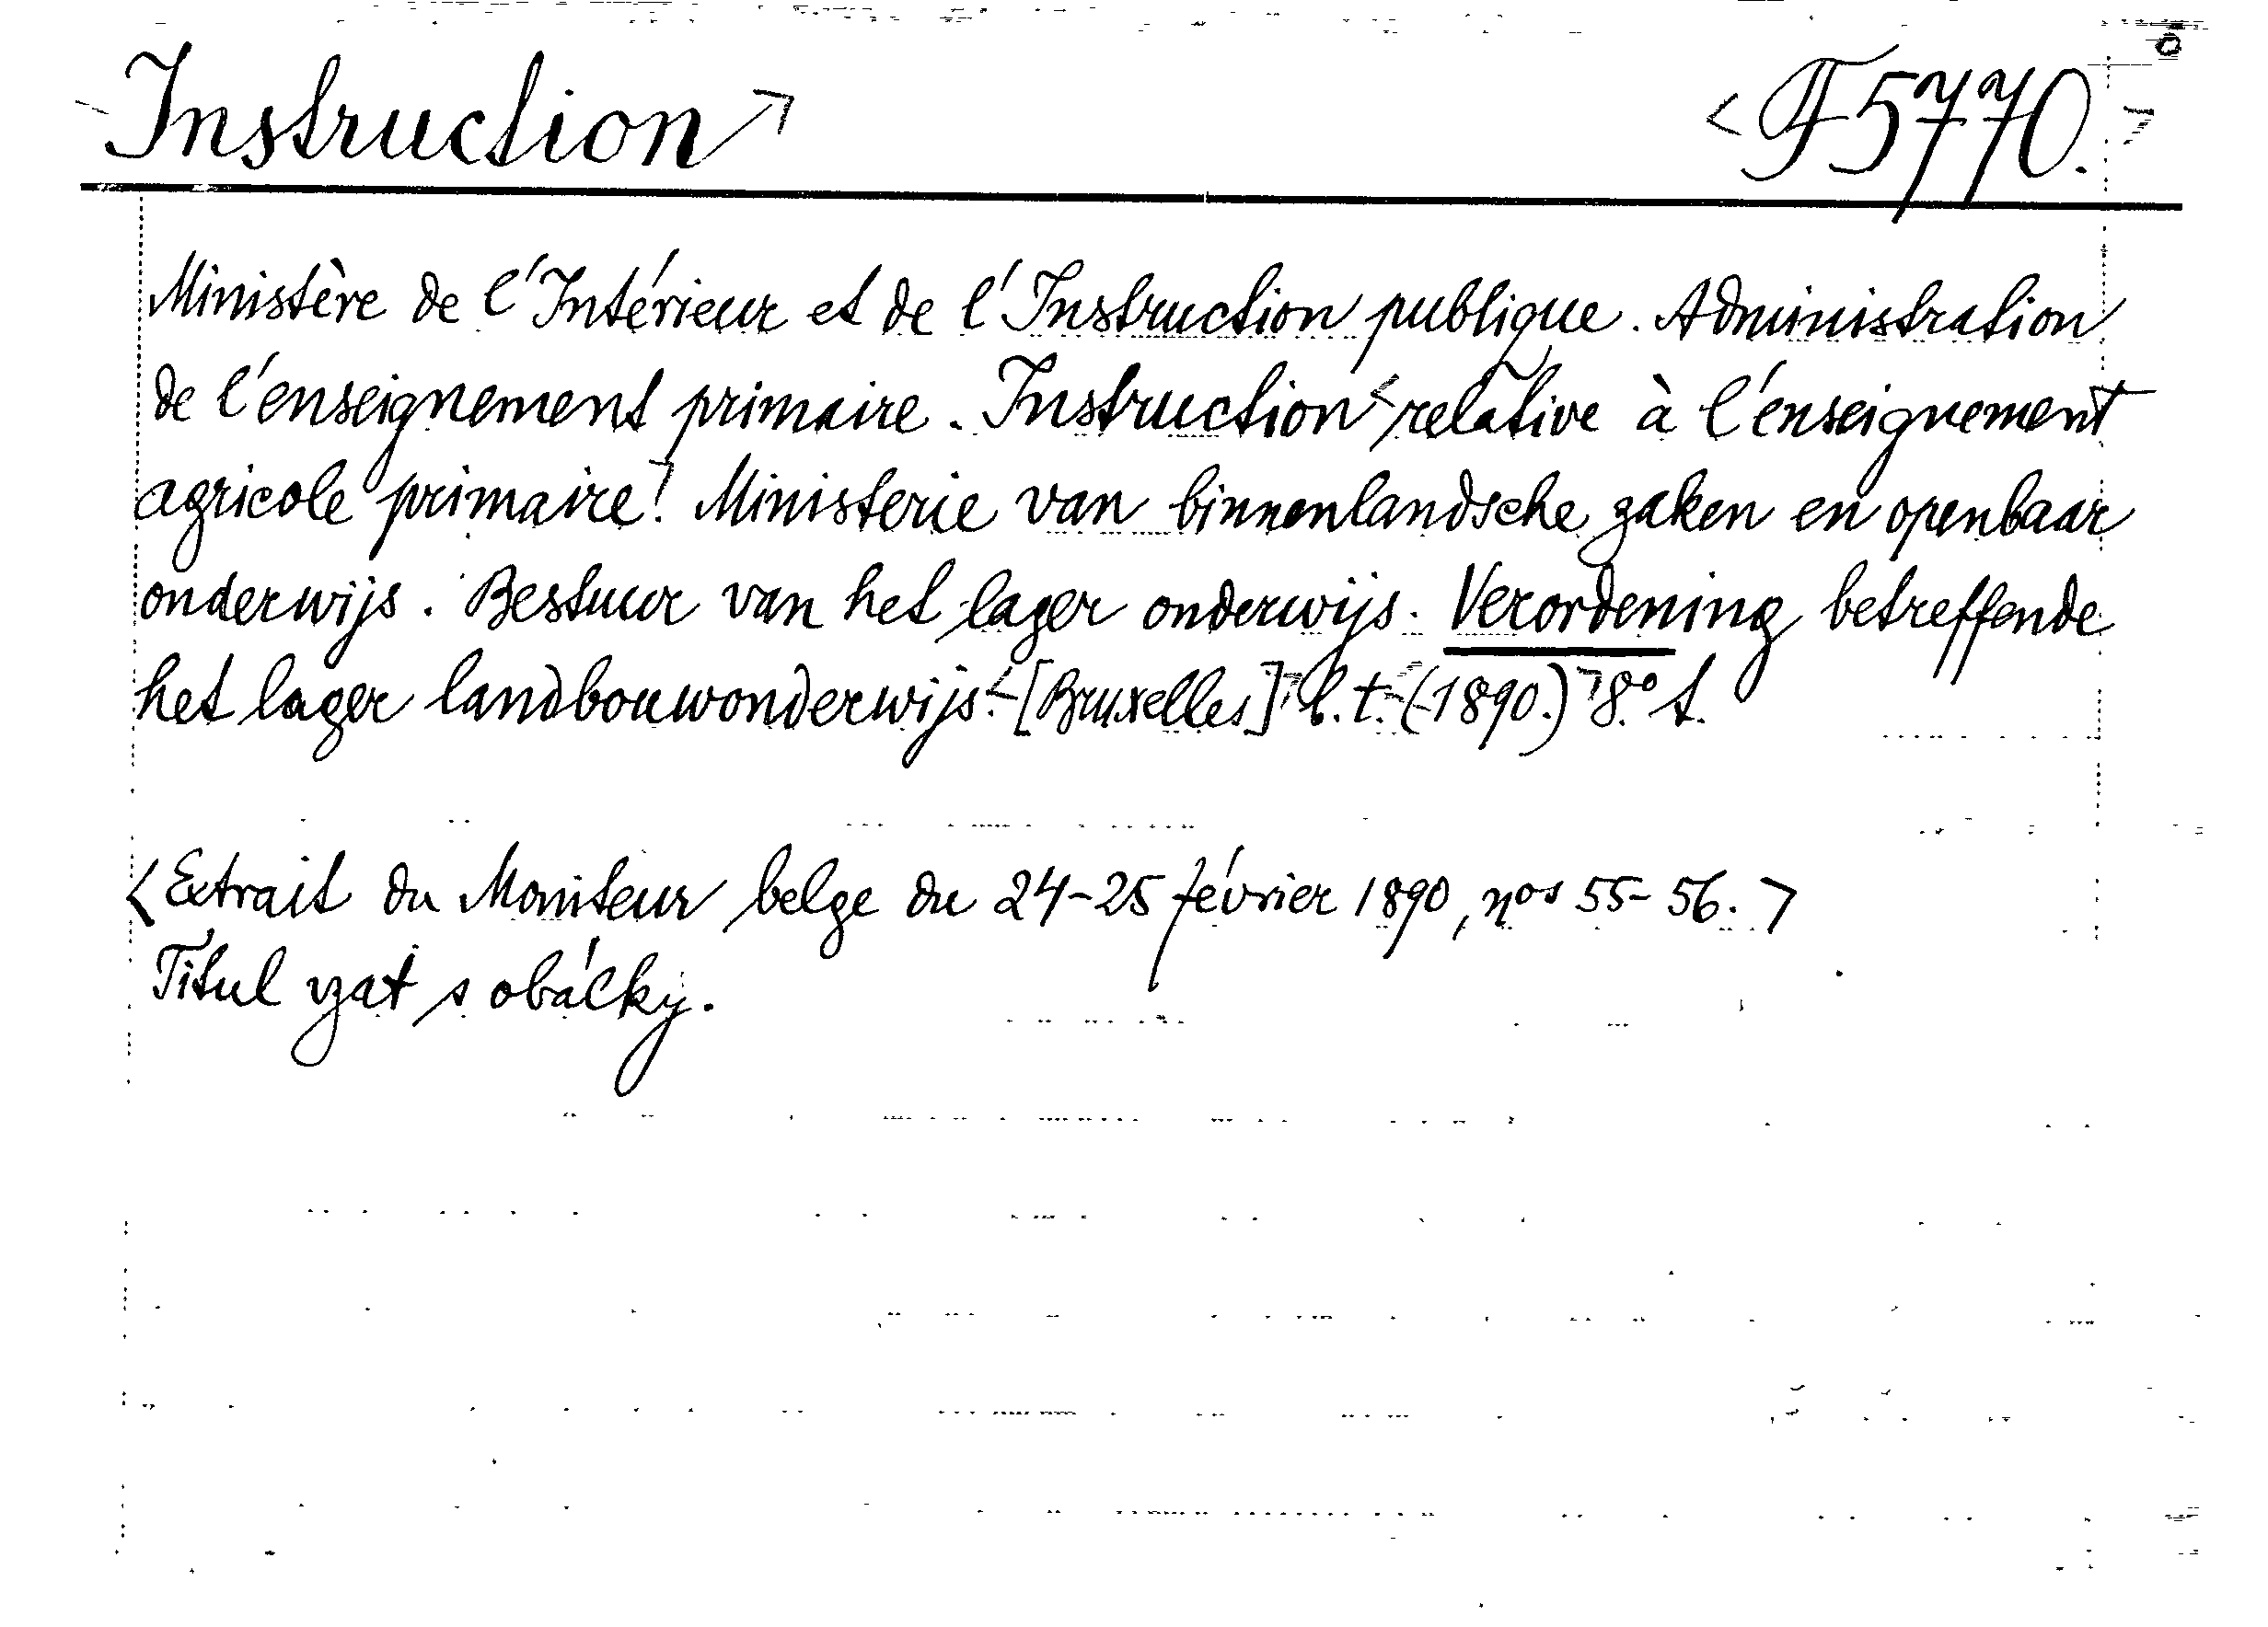 Instruction
F 5770.
Ministère de l'Intérieur et de l'Instruction publique. Administration
de l'enseignement primaire. Instruction relative à l'enseignement
agricole primaire. Ministerie van binnenlandsche zaken en openbaar
onderwijs. Bestuur van het lager onderwijs. Verordening betreffende
het lager landbouwonderwijs. [Bruxelles] b. t. (1890.) 8.º f.
<Extrait du Moniteur belge du 24-25 février 1890, nos 55-56.>
Titul vzat s obálky.